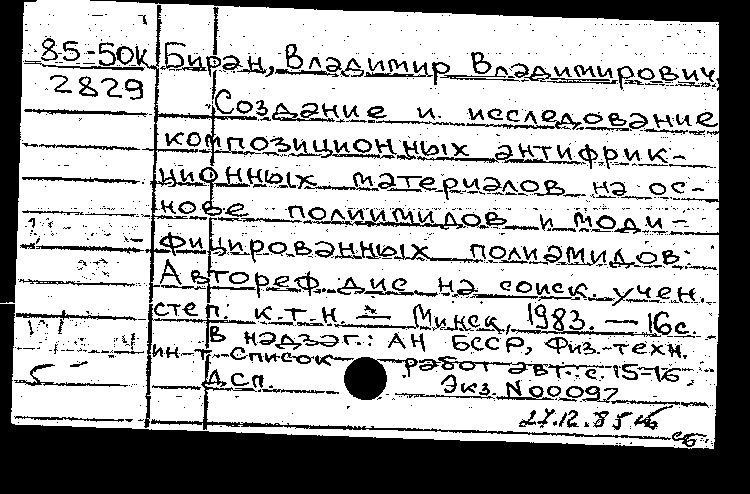 85-50к Биран, Владимир Владимирович
2829
Создание и исследование
композиционных антифрик-
ционных материалов на ос-
нове полиимидов и моди-
фицированных полиамидов:
Автореф. дис. на соиск. учен.
степ. к.т.н. — Минск, 1983. — 16с.
В надзаг.: АН БССР, Физ.-техн.
ин-т. Список работ авт.: с. 15-16.
ДСП. Экз. N00097
5-
27.12.85